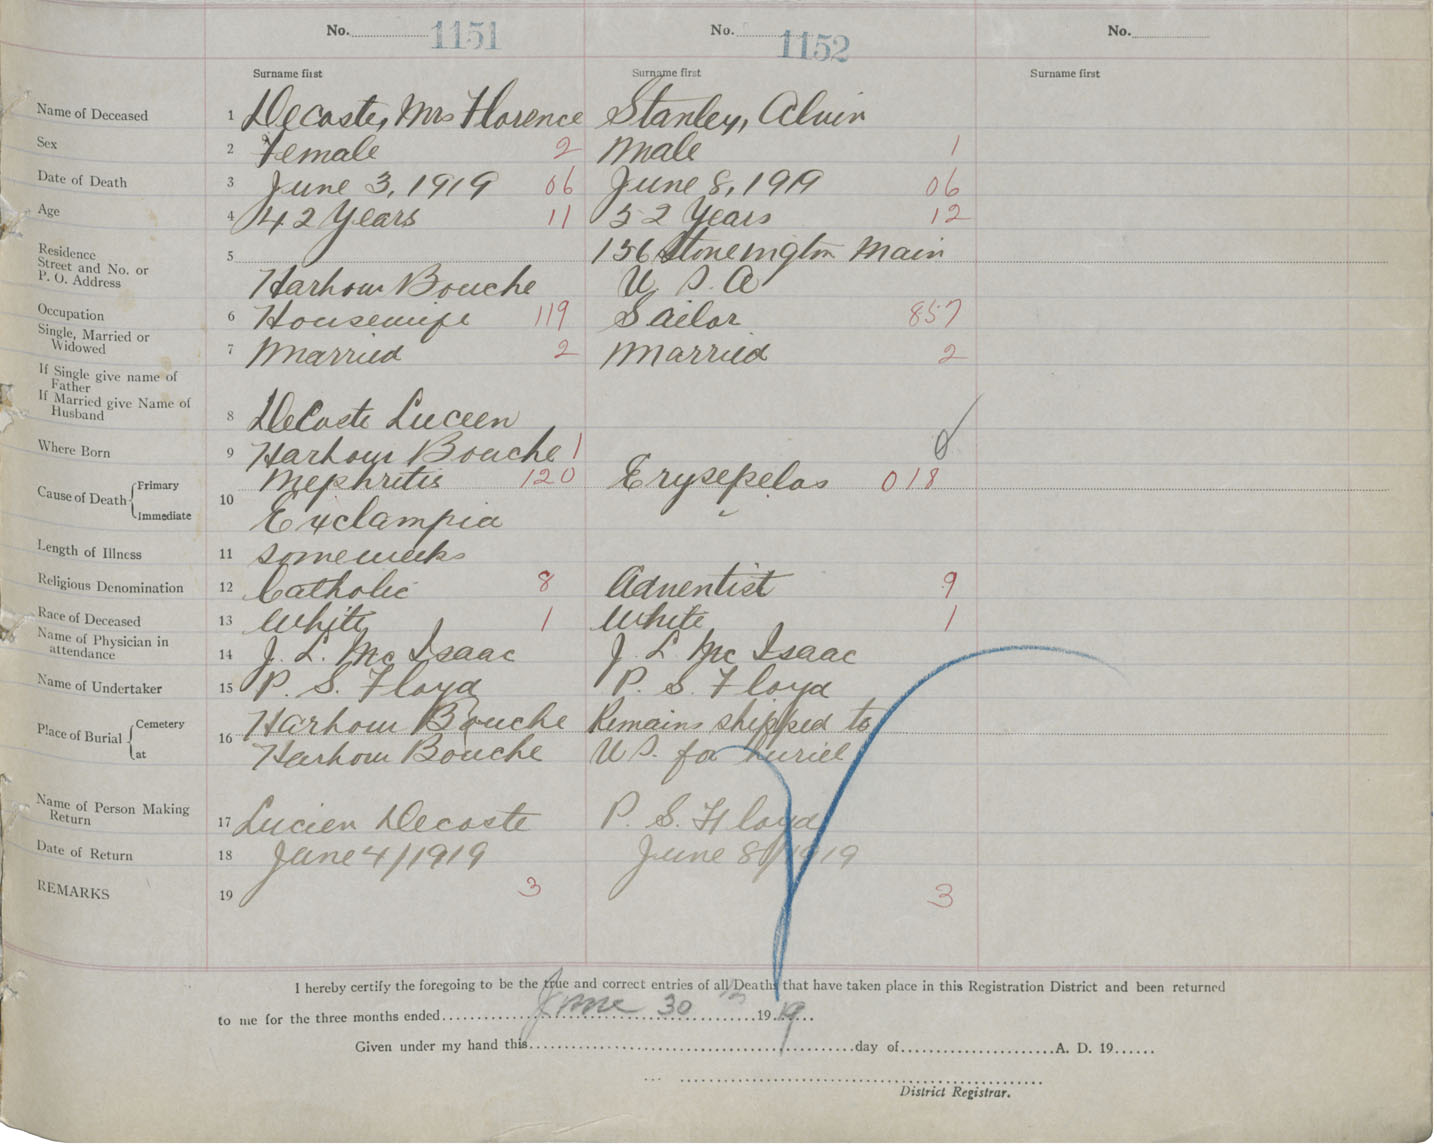 No. 1151 No. 1152 No.
Surname first Surname first Surname first
Name of Deceased 1 Decoste, Mrs Florence Stanley, Alvin
Sex 2 Female 2 Male 1
Date of Death 3 June 3, 1919 06 June 8, 1919 06
Age 4 42 Years 11 52 Years 12
Residence
Street and No. or 5 156 Stonemgton Main
P. O. Address Harhour Bouche U. S. A
Occupation 6 Housewife 119 Sailor 857
Single, Married or
Widowed 7 Married 2 Married 2
If Single give name of
Father
If Married give Name of
Husband 8 DeCoste Luceen
Where Born 9 Harhour Bouche 1
Cause of Death Primary Mephritis 120 Erysepelas 018
Immediate 10 Exclampia
Length of Illness 11 some weeks
Religious Denomination 12 Catholic 8 Adventist 9
Race of Deceased 13 White 1 White 1
Name of Physician in
attendance 14 J. L. McIsaac J. L McIsaac
Name of Undertaker 15 P. S. Floyd P. S. Floyd
Place of Burial Cemetery 16 Harhour Bouche Remains shipped to
at Harhour Bouche U S. for buriel
Name of Person Making
Return 17 Lucien Decoste P. S. Floyd
Date of Return 18 June 4/1919 June 8/1919
REMARKS 19 3 3
I hereby certify the foregoing to be the true and correct entries of all Deaths that have taken place in this Registration District and been returned
to me for the three months ended June 30th 1919
Given under my hand this day of A. D. 19
District Registrar.